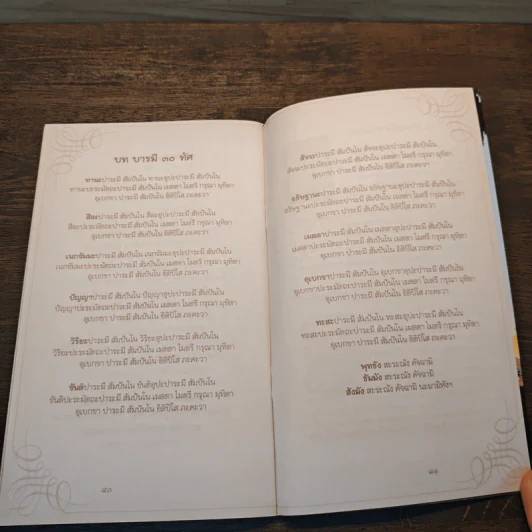 บท บารมี ๓๐ ทัศ
ทานะปาระมี สัมปันโน ทานะอุปะปาระมี สัมปันโน
ทานะปะระมัตถะปาระมี สัมปันโน เมตตา ไมตรี กรุณา มุทิตา
อุเบกขา ปาระมี สัมปันโน อิติปิโส ภะคะวา
สีละปาระมี สัมปันโน สีละอุปะปาระมี สัมปันโน
สีละปะระมัตถะปาระมี สัมปันโน เมตตา ไมตรี กรุณา มุทิตา
อุเบกขา ปาระมี สัมปันโน อิติปิโส ภะคะวา
เนกขัมมะปาระมี สัมปันโน เนกขัมมะอุปะปาระมี สัมปันโน
เนกขัมมะปะระมัตถะปาระมี สัมปันโน เมตตา ไมตรี กรุณา มุทิตา
อุเบกขา ปาระมี สัมปันโน อิติปิโส ภะคะวา
ปัญญาปาระมี สัมปันโน ปัญญาอุปะปาระมี สัมปันโน
ปัญญาปะระมัตถะปาระมี สัมปันโน เมตตา ไมตรี กรุณา มุทิตา
อุเบกขา ปาระมี สัมปันโน อิติปิโส ภะคะวา
วิริยะปาระมี สัมปันโน วิริยะอุปะปาระมี สัมปันโน
วิริยะปะระมัตถะปาระมี สัมปันโน เมตตา ไมตรี กรุณา มุทิตา
อุเบกขา ปาระมี สัมปันโน อิติปิโส ภะคะวา
ขันติปาระมี สัมปันโน ขันติอุปะปาระมี สัมปันโน
ขันติปะระมัตถะปาระมี สัมปันโน เมตตา ไมตรี กรุณา มุทิตา
อุเบกขา ปาระมี สัมปันโน อิติปิโส ภะคะวา
๘๐
สัจจะปาระมี สัมปันโน สัจจะอุปะปาระมี สัมปันโน
สัจจะปะระมัตถะปาระมี สัมปันโน เมตตา ไมตรี กรุณา มุทิตา
อุเบกขา ปาระมี สัมปันโน อิติปิโส ภะคะวา
อธิษฐานะปาระมี สัมปันโน อธิษฐานะอุปะปาระมี สัมปันโน
อธิษฐานะปะระมัตถะปาระมี สัมปันโน เมตตา ไมตรี กรุณา มุทิตา
อุเบกขา ปาระมี สัมปันโน อิติปิโส ภะคะวา
เมตตาปาระมี สัมปันโน เมตตาอุปะปาระมี สัมปันโน
เมตตาปะระมัตถะปาระมี สัมปันโน เมตตา ไมตรี กรุณา มุทิตา
อุเบกขา ปาระมี สัมปันโน อิติปิโส ภะคะวา
อุเบกขาปาระมี สัมปันโน อุเบกขาอุปะปาระมี สัมปันโน
อุเบกขาปะระมัตถะปาระมี สัมปันโน เมตตา ไมตรี กรุณา มุทิตา
อุเบกขา ปาระมี สัมปันโน อิติปิโส ภะคะวา
ทะสะปาระมี สัมปันโน ทะสะอุปะปาระมี สัมปันโน
ทะสะปะระมัตถะปาระมี สัมปันโน เมตตา ไมตรี กรุณา มุทิตา
อุเบกขา ปาระมี สัมปันโน อิติปิโส ภะคะวา
พุทธัง สะระณัง คัจฉามิ
ธัมมัง สะระณัง คัจฉามิ
สังฆัง สะระณัง คัจฉามิ นะมามิหังฯ
๘๑